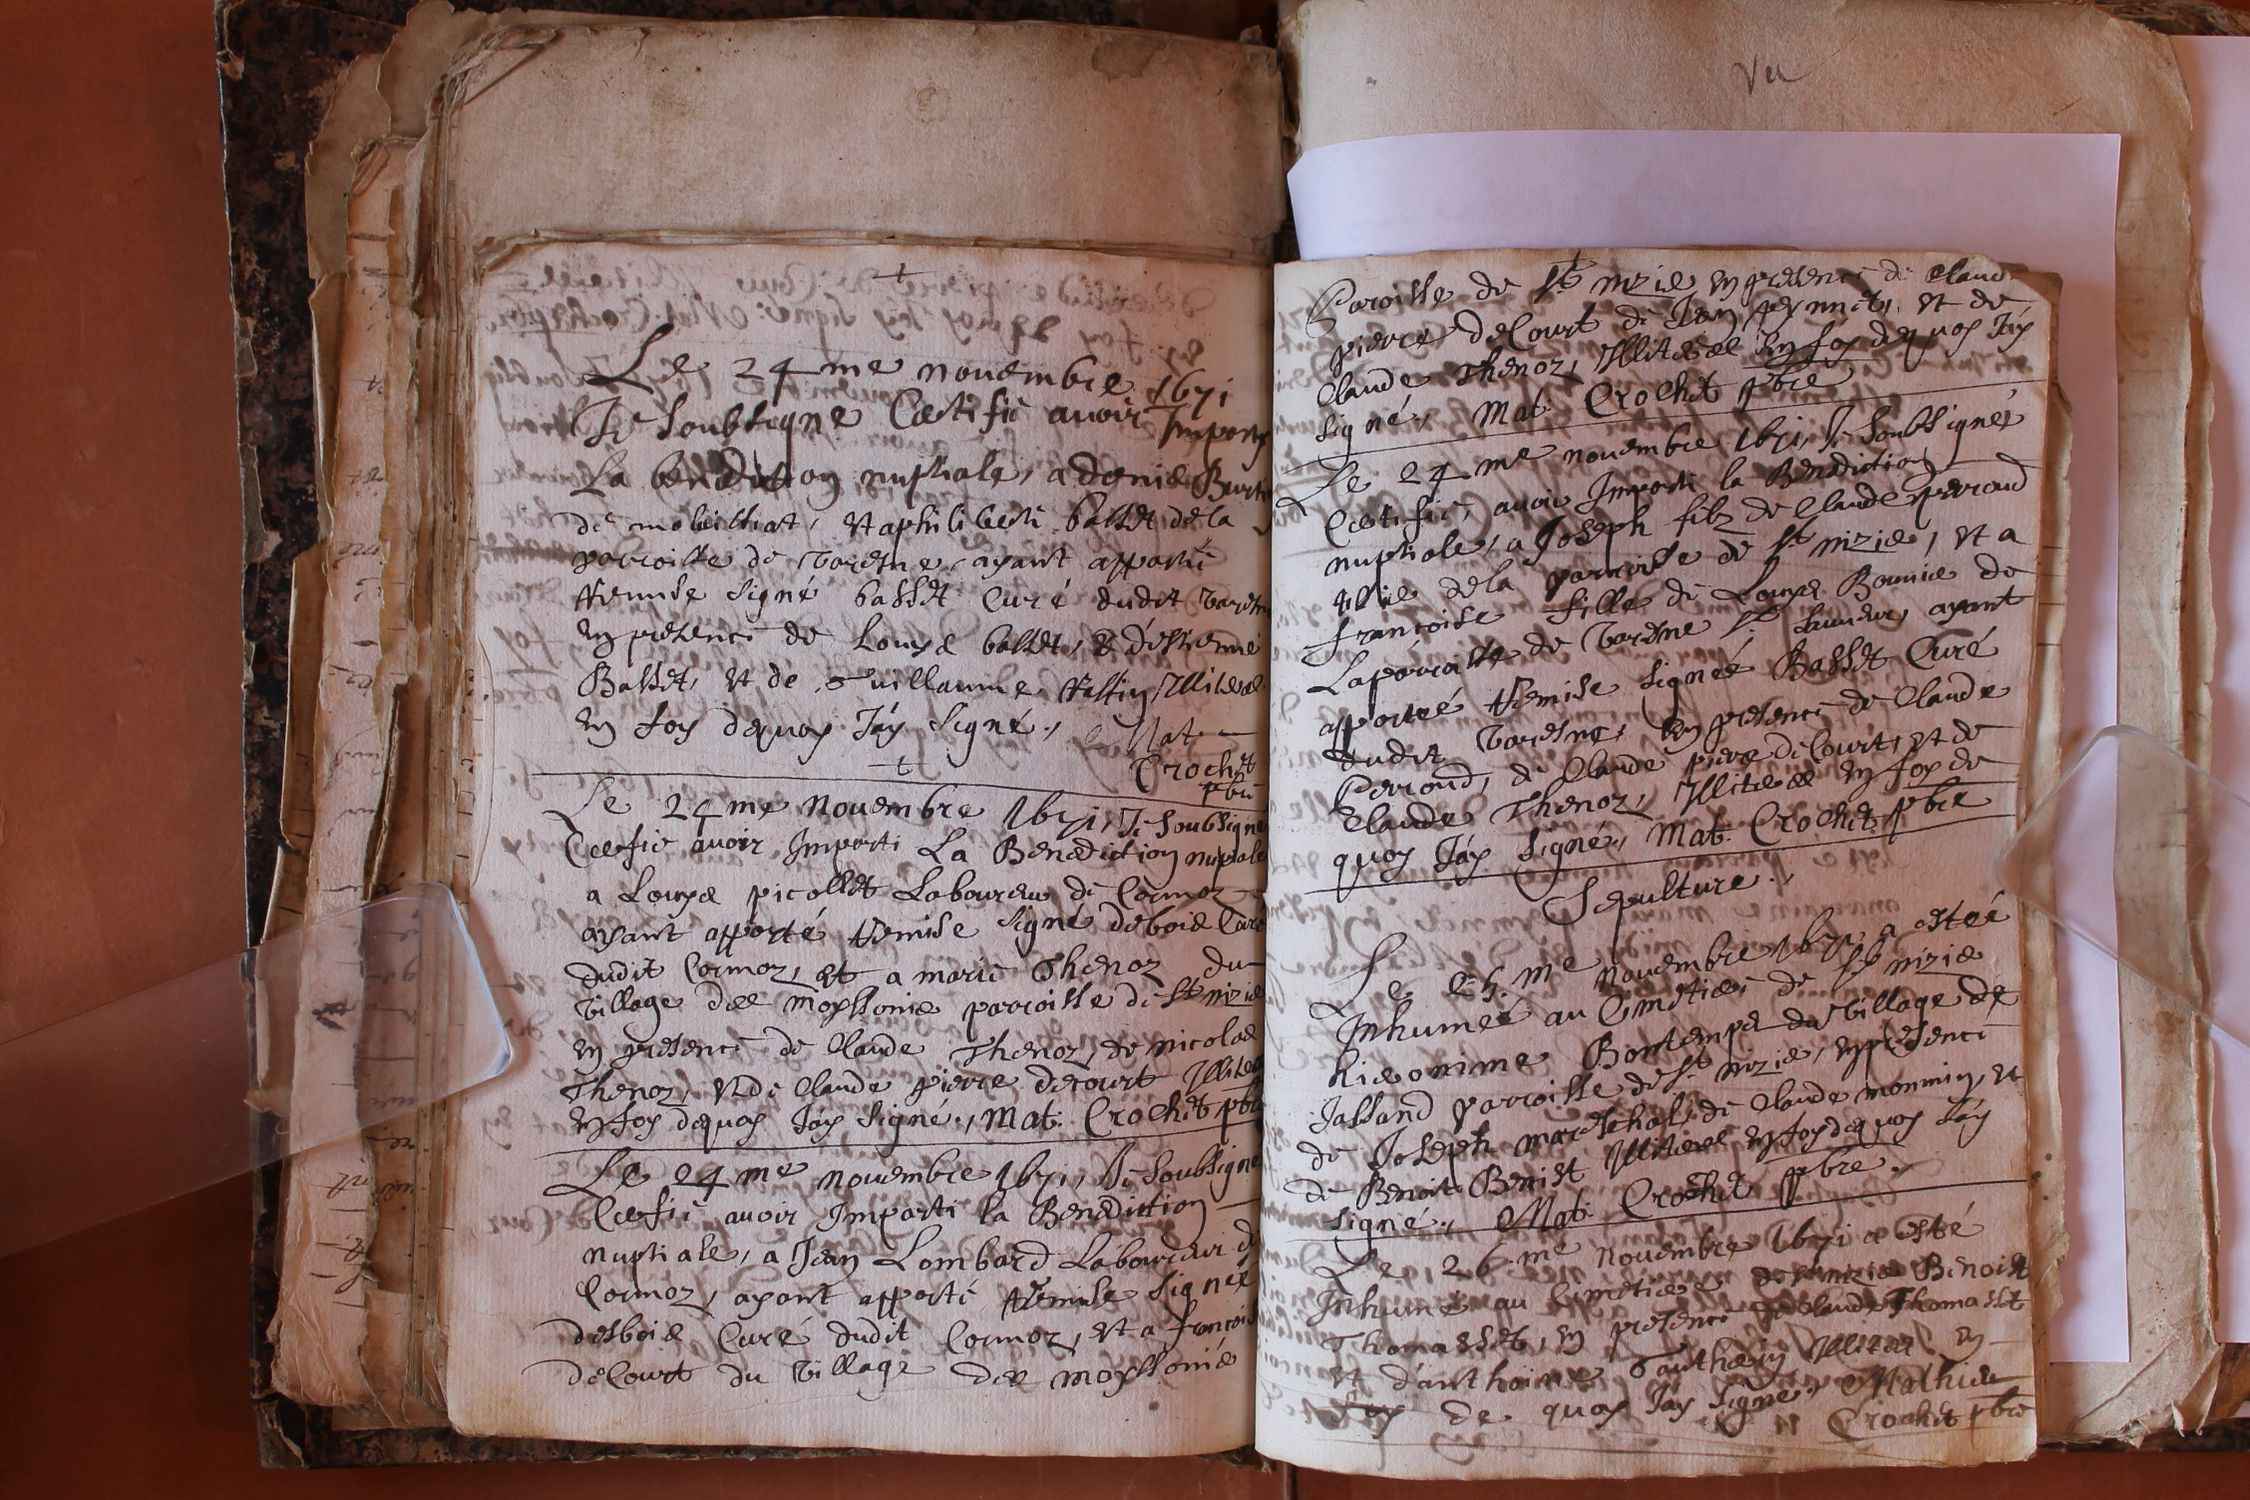 Le 24me novembre 1671
Je soubsigne Certifie avoir Imparty
La benediction nuptiale, a denis
de mobilliat, et a philiberte basset de la
parroisse de varesne ayant apporté
remise signé basset Curé dudit
en presence de Louys basset, d'estienne
Basset, et de Guillaume Illiteres
en foy dequoy Jáy signé, Mat
Crochet
pbre
Le 24me novembre 1671, Je soubsigne
Certifie avoir Imparti La Benediction nuptiale
a Louys picollet Laboureur de Cormoz
ayant apporté remise signé debois Curé
dudit Cormoz, et a marie Thenoz du
village des moyssonie parroisse de st nizie
en presence de Claude Thenoz, de nicolas
Thenoz, et de Claude pierre decourt
en foy dequoy Jáy signé, Mat. Crochet pbre
Le 24me novembre 1671, Je soubsigne
Certifie avoir Imparti la Benediction
nuptiale, a Jean Lombard Laboureur de
Cormoz, ayant apporté remise signee
desbois Curé dudit Cormoz, et a francoise
deCourt du village des moyssonie
Vu
Paroisse de st nizie en presence de Claude
pierre deCourt de Jean et de
Claude Thenoz, Illiteres en foy dequoy Jáy
signé, Mat. Crochet pbre
Le 24me novembre 1671, Je soubsignée
Certifie, avoir Imparti la Benediction
nuptiale, a Joseph filz de Claude perroud
de la parroisse de st nizie, et a
francoise fille de Louys de
La parroisse de varesne st sauveur, ayant
apportee remise signeé Basset Curé
dudit varesne, en presence de Claude
Perroud, de Claude pierre deCourt, et de
Claude Thenoz, Illiteres en foy de
quoy Jáy signé, Mat. Crochet pbre
Sepulture.
Le 25.me novembre 1671, a estéé
Inhumeé au Cimetiere de st nizie
hieronime Bontemps du village de
Jassand parroisse de st nizie, en presence
de Joseph mareschal, de Claude monnin, et
de Benoit Benist Illiteres en foy dequoy Jáy
signé, Mat. Crochet pbre.
Le 26.me novembre 1671 a esté
Inhumé au Cimetiere de st nizie Benoist
Thomasset, en presence de Claude Thomasset
et d'anthoine Illiteres en
foy de quoy Jáy signé, Mathieu
Crochet pbre